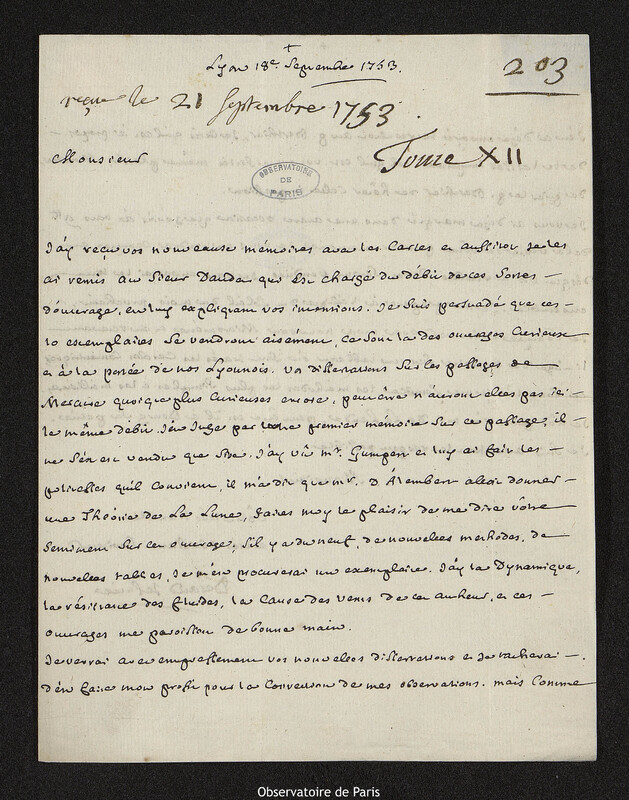 Lyon 18e. Septembre 1753.
203
reçue le 21 Septembre 1753
Tome XII
Monsieur
OBSERVATOIRE
DE
PARIS
J'ay reçu vos nouveaux mémoires avec les Cartes et aussitot je les
ai remis au Sieur Dauda qui est chargé du débit de ces Sortes
d'ouvrage, en luy expliquant vos intentions. Je suis persuadé que ces
10 exemplaires se vendront aisément, ce sont la des ouvrages Curieux
et à la portée de nos Lyonnois. vos dissertations sur les passages de
Mercure quoique plus Curieuses encore, peut être n'auront elles pas ici
le même débit. J'en Juge par votre premier mémoire sur ce passage, il
ne s'en est vendu que Six. J'ay vû mr. Gumpert et luy ai fait les
politesses qu'il Convient, il m'a dit que mr. D'Alembert alloit donner
une Théorie de La Lune, faites moy le plaisir de me dire vôtre
Sentiment sur cet ouvrage, s'il y a du neuf, de nouvelles methodes, de
nouvelles tables, Je m'en procurerai un exemplaire. J'ay la Dynamique,
la résistance des fluides, la Cause des vents de cet autheur, et ces
ouvrages me paroissent de bonne main.
Je verrai avec empressement vos nouvelles dissertations et Je tacherai
d'en faire mon profit pour la Correction de mes observations. mais Comme
Observatoire de Paris